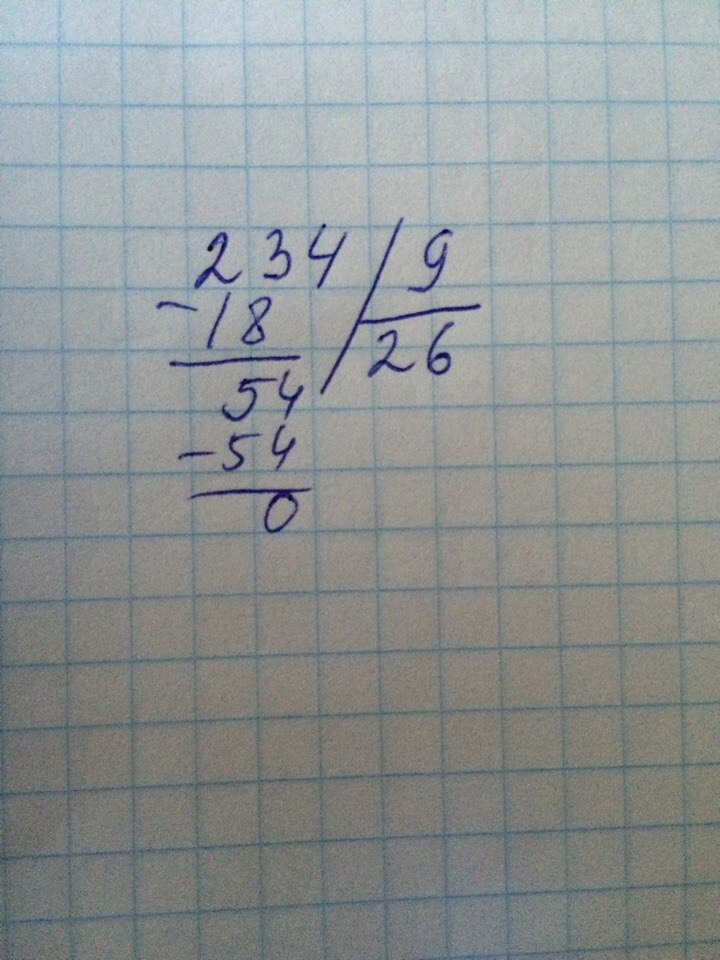 234 / 9
-18 26
54
-54
0